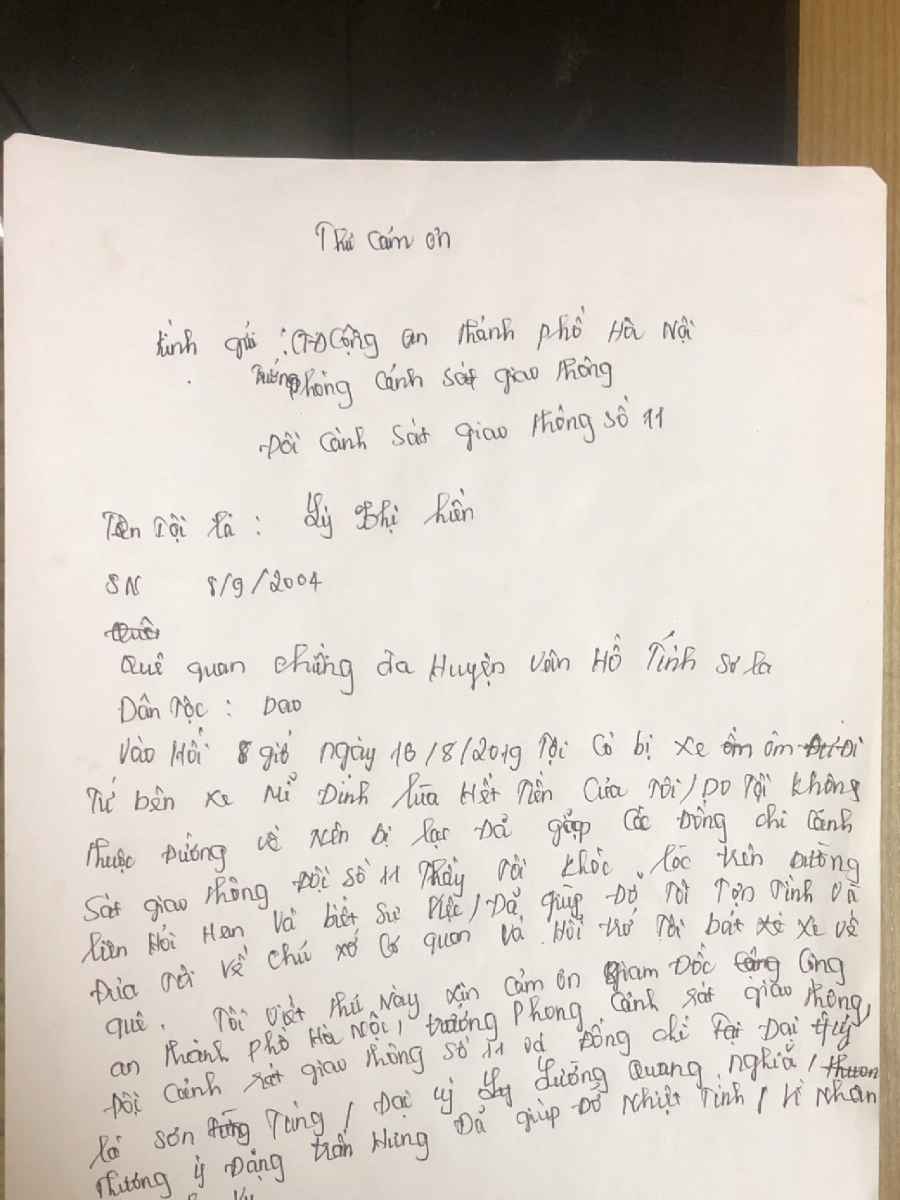 Thư cảm ơn
kính gửi : Công an thành phố Hà Nội
Trưởng phòng cảnh sát giao thông
Đội cảnh sát giao thông số 11
Tên Tôi là : Lý Thị hiền
SN 8/9/2004
Quê quan chiềng da Huyện Vân Hồ Tỉnh sơ la
Dân Tộc : Dao
Vào Hồi 8 giờ ngày 16/8/2019 Tôi Có bị xe ôm
Từ bên xe Mỉ Đình lừa Hết Tiền Của Tôi/ Do Tôi không
thuộc Đường về nên bị lạc Đả gặp Các Đồng chi Cảnh
Sát giao thông Đội số 11 Thấy Tôi khóc lóc ven Đường
liên Hỏi Han Và biết Sự Việc/ Đả giúp Đở Tôi Tận Tình Và
Đưa Tôi Về chụ xở Cơ quan Và Hồi trở Tôi bắt xe về
quê. Tôi Viết thư này xin cảm ơn giam Đốc Công
an thành phố Hà Nội, trưởng Phong Cảnh sát giao thông,
Đội Cảnh sát giao thông số 11 và Đồng chi Đại úy
là Sơn Tùng / Đại úy Lường Quang nghiả /
thương úy Đặng trần Hưng Đả giúp Đở Nhiệt Tình / Vì Nhân